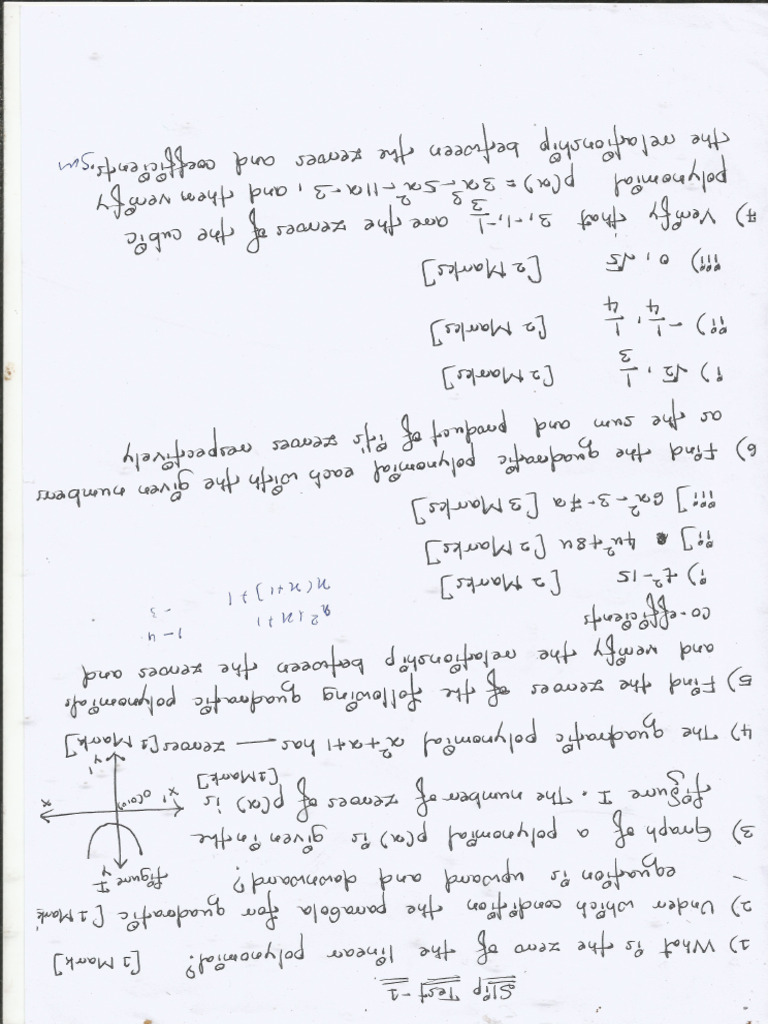 Slip Test-1
1) What is the zero of the linear polynomial? [1 Mark]
2) Under which condition the parabola for quadratic [1 Mark]
equation is upward and downward?
3) Graph of a polynomial p(x) is given in the
figure I. The number of zeroes of p(x) is
[1 Mark]
figure I
Y
X' O(0,0) X
Y'
4) The quadratic polynomial x²+x+1 has — zeroes [1 Mark]
5) Find the zeroes of the following quadratic polynomials
and verify the relationship between the zeroes and
co-efficients
x²+x+1
x(x+1)+1
1-4
-3
i) t²-15 [2 Marks]
ii] 4u²+8u [2 Marks]
iii] 6x²-3-7x [3 Marks]
6) Find the quadratic polynomial each with the given numbers
as the sum and product of it's zeroes respectively
i) √2, 1/3 [2 Marks]
ii) -1/4, 1/4 [2 Marks]
iii) 0, √5 [2 Marks]
7) Verify that 3, -1, -1/3 are the zeroes of the cubic
polynomial p(x) = 3x³-5x²-11x-3, and then verify
the relationship between the zeroes and coefficients.